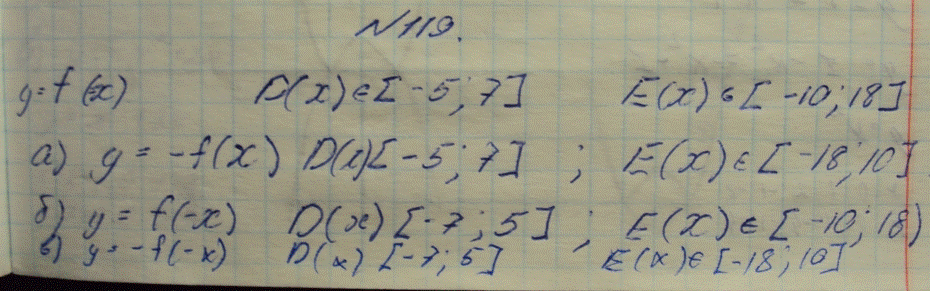 №119.
y=f(x) D(x)∈[-5;7] E(x)∈[-10;18]
а) y=-f(x) D(x)[-5;7] ; E(x)∈[-18;10]
б) y=f(-x) D(x)[-7;5] ; E(x)∈[-10;18)
в) y=-f(-x) D(x)[-7;5] E(x)∈[-18;10]